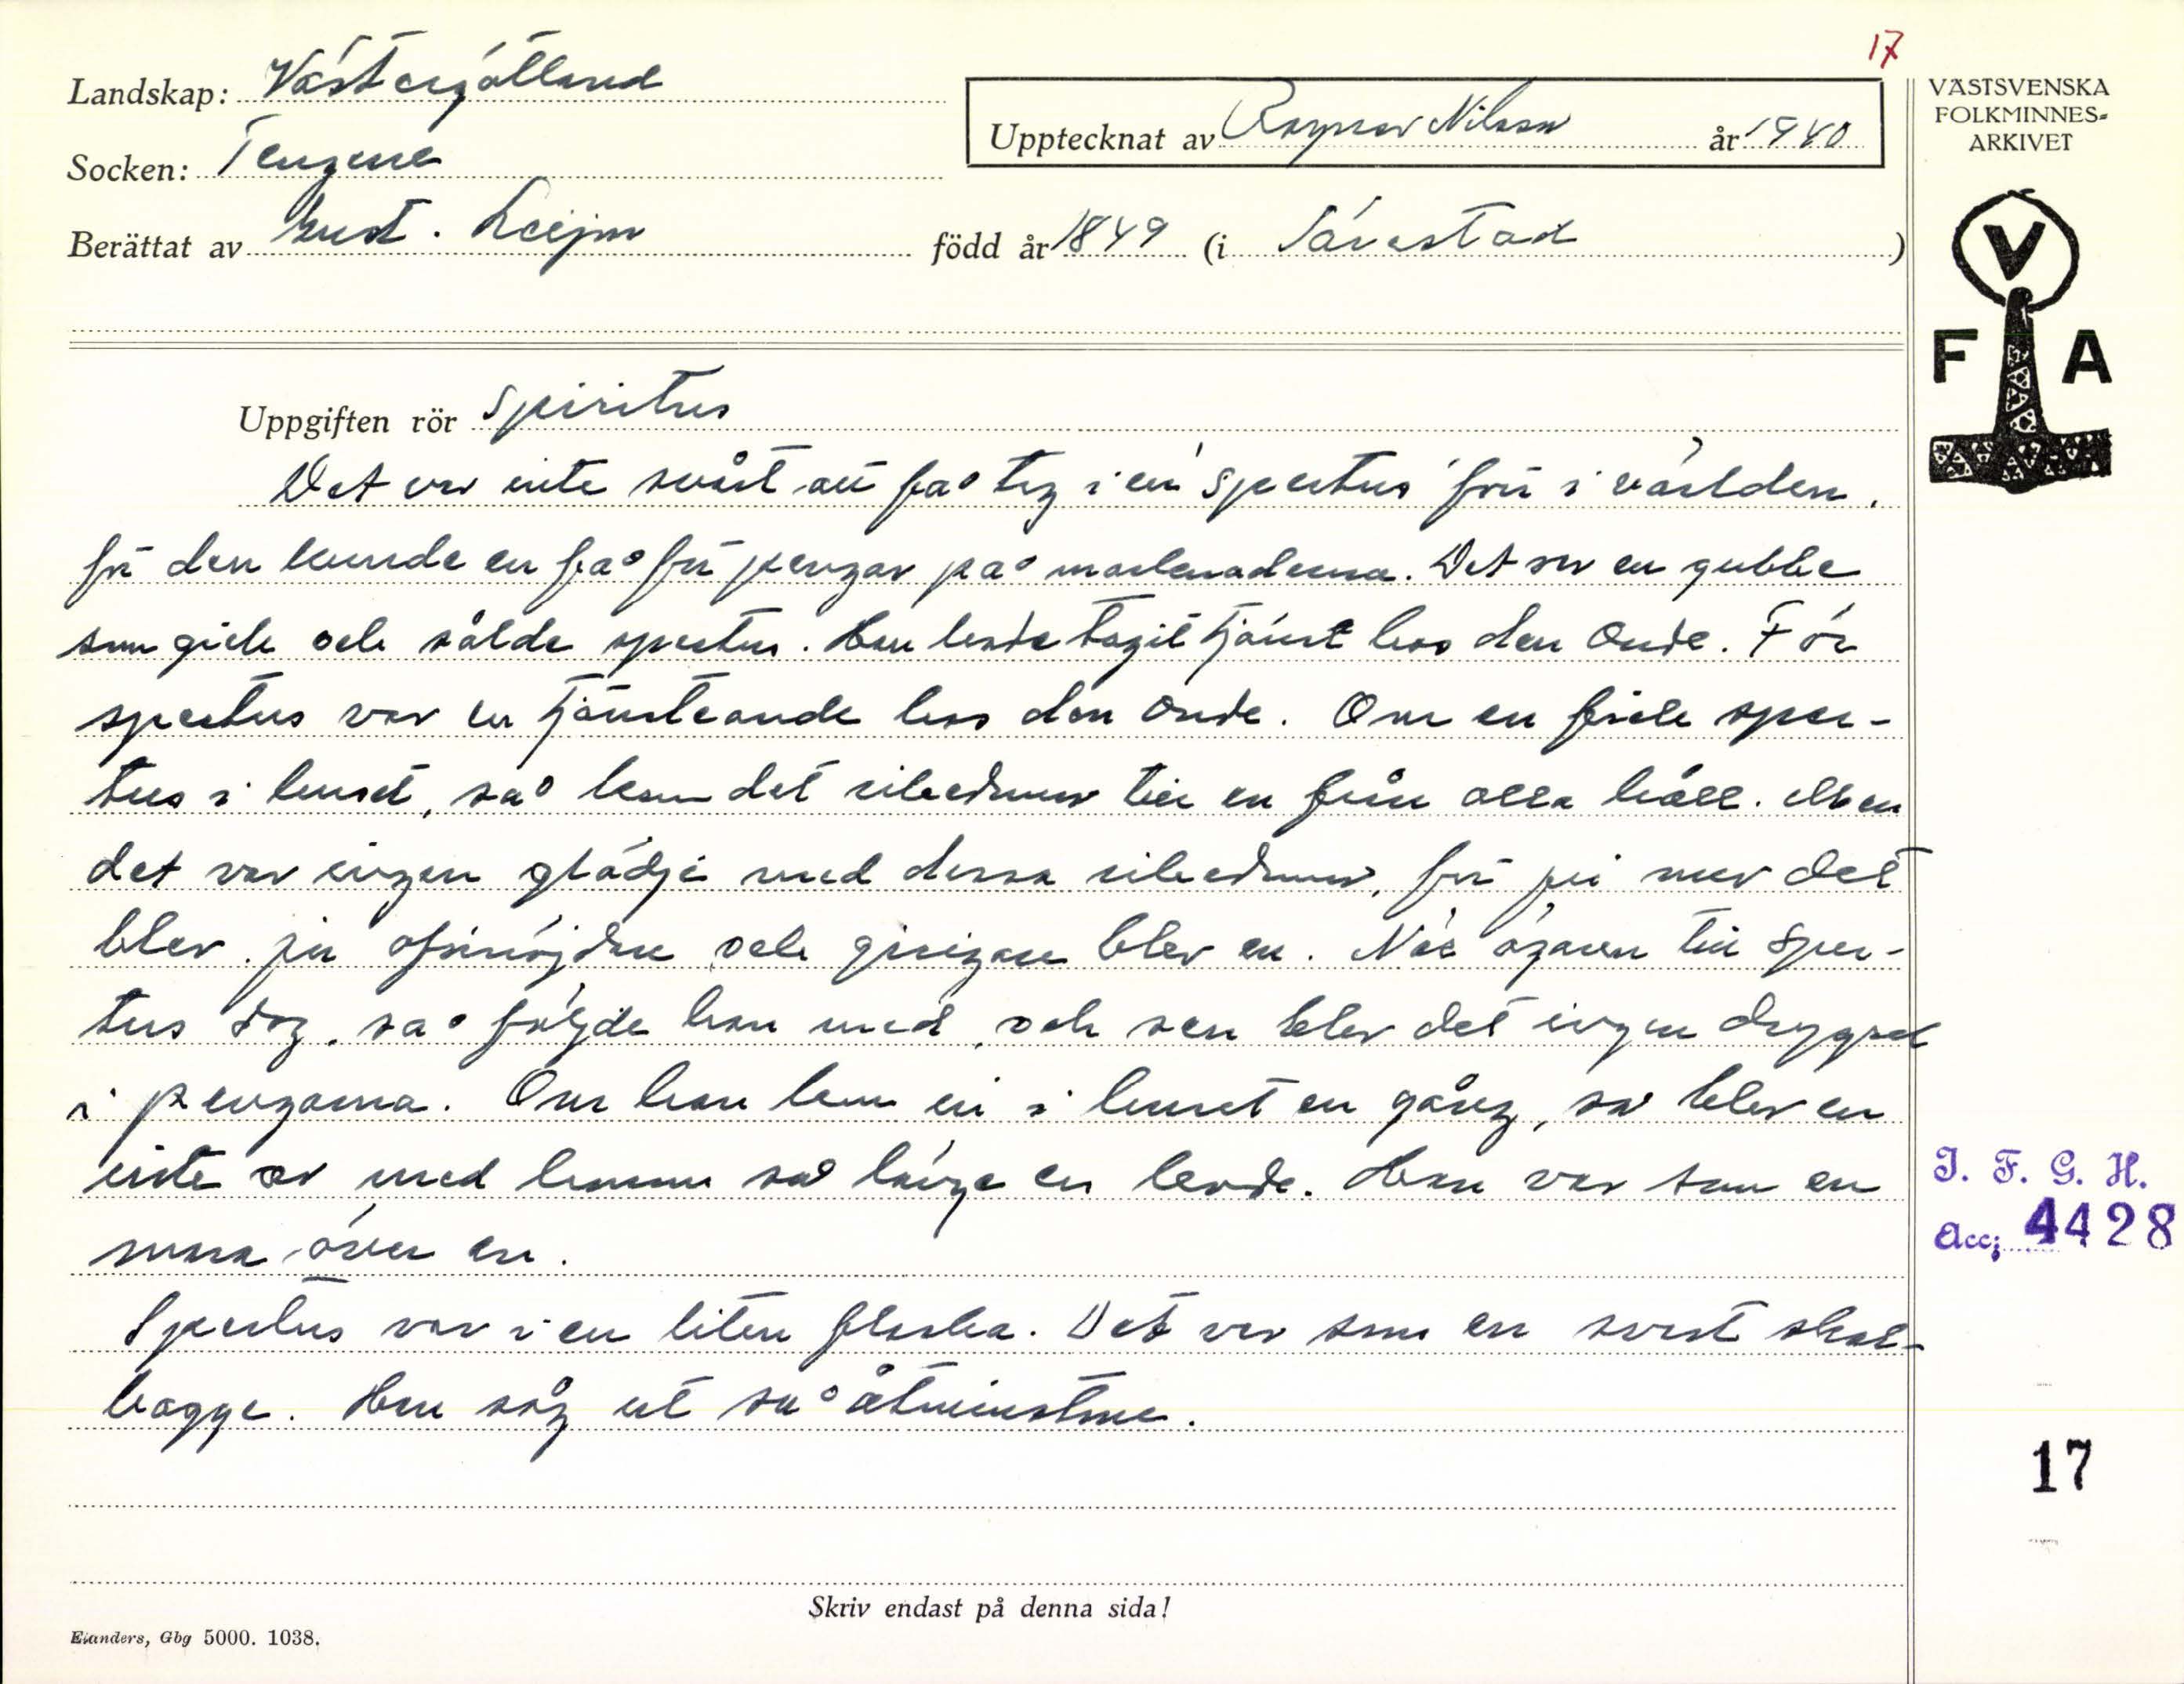 17
Landskap: Västergötland
Upptecknat av Ragnar Nilsson år 1940
VÄSTSVENSKA
FOLKMINNES-
ARKIVET
Socken: Tengene
Berättat av Gust. Leijon född år 1849 (i Särestad)
V
F A
Uppgiften rör Spiritus
Det var inte svårt att få tag i en spertus förr i världen,
för den kunde en få för pengar på marknaderna. Det var en gubbe
som gick och sålde spertus. Han hade tagit tjänst hos den Onde. För
spertus var en tjänsteande hos den Onde. Om en fick sper-
tus i huset, så kom det rikedomar till en från alla håll. Men
det var ingen glädje med dessa rikedomar, för ju mer det
blev ju oförnöjdare och girigare blev en. När ägaren till sper-
tus dog, så följde han med, och sen blev det ingen drygsel
i pengarna. Om han kom in i huset en gång, så blev en
inte av med honom så länge en levde. Han var som en
mara över en.
Spertus var i en liten flaska. Det var som en svart skal-
bagge. Han såg ut så åtminstone.
I. F. G. H.
Acc; 4428
17
Skriv endast på denna sida!
Elanders, Gbg 5000. 1038.